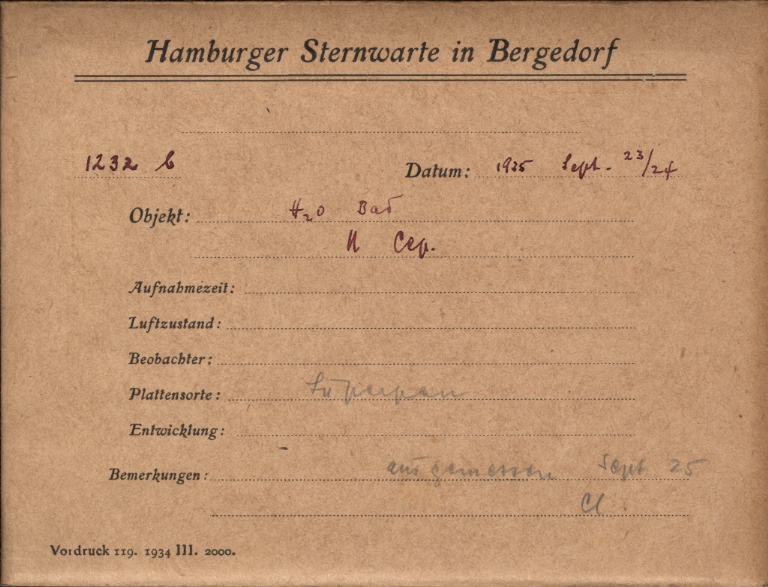 Hamburger Sternwarte in Bergedorf
1232 b Datum: 1935 Sept. 23/24
Objekt: H₂O Bad
Cep.
Aufnahmezeit:
Luftzustand:
Beobachter:
Plattensorte: Superpan
Entwicklung:
Bemerkungen: ausgemessen Sept 25
Cl.
Vordruck 119. 1934 III. 2000.